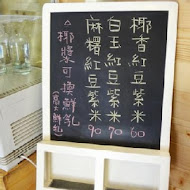 椰香紅豆紫米 60
白玉紅豆紫米 70
麻糬紅豆紫米 90
△椰漿可換鮮乳